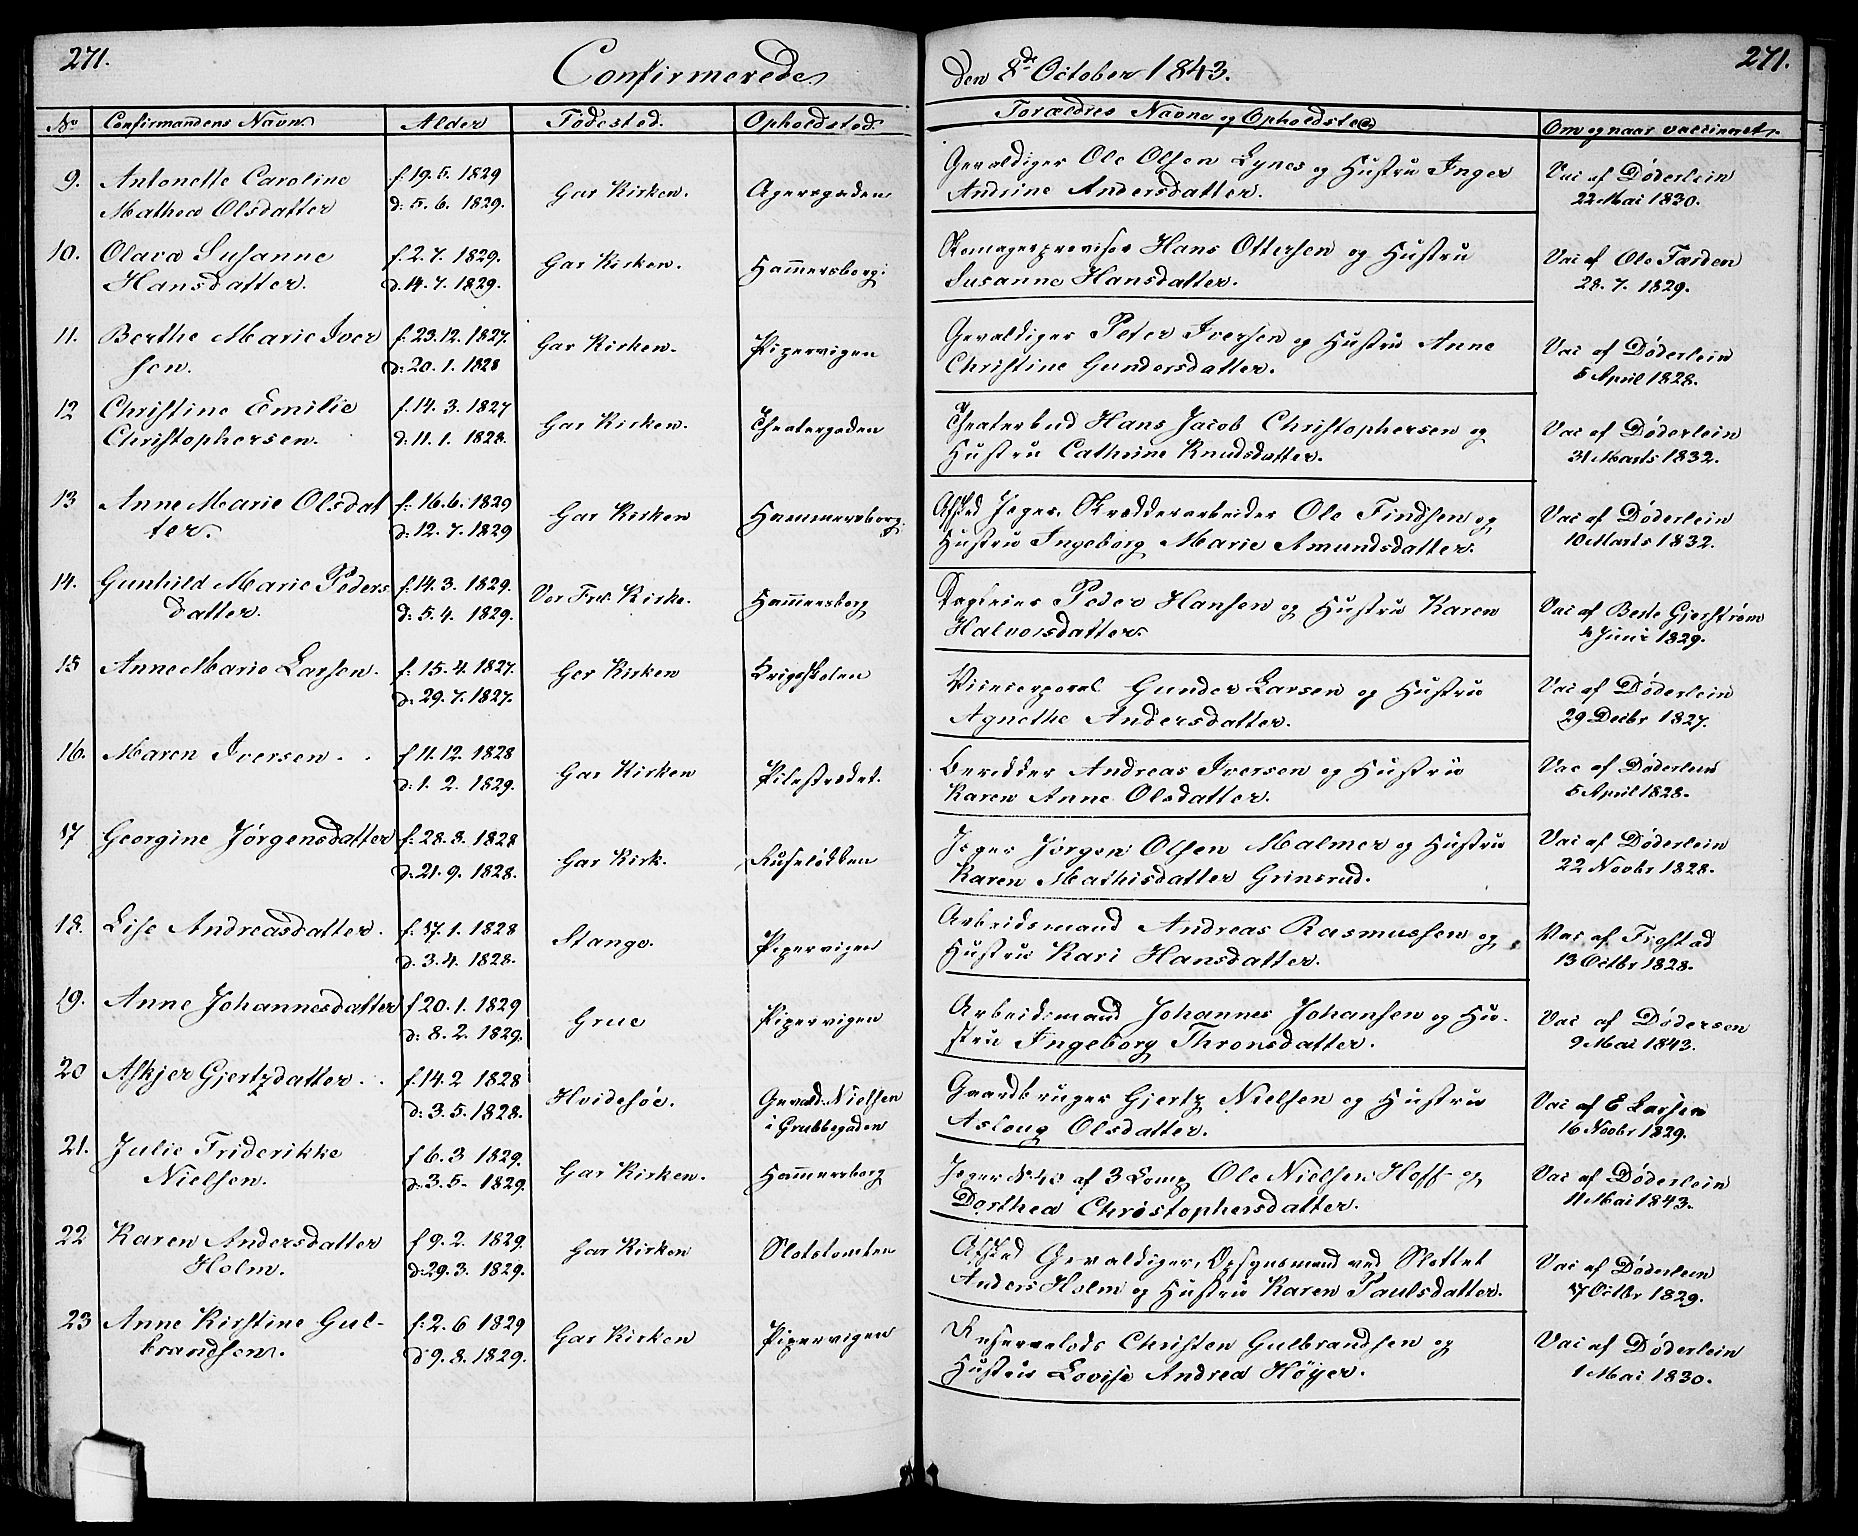 271.
Confirmerede
den 8de October 1843.
271.
No
Confirmandens Navn
Alder
Födested.
Opholdsted.
Forældres Navne og Opholdsted
Om og naar vaccineret.
9. Antonette Caroline f. 19. 5. 1829 Gar Kirken. Agersgaden Gevaldiger Ole Olsen Lynes og Hustru Inger Vac af Døderlein
Mathea Olsdatter d. 5. 6. 1829. Andrine Andersdatter. 22 Mai 1830.
10. Olava Susanne f. 2. 7. 1829. Gar Kirken. Hammersborg Hans Ottersen og Hustru Vac af Ole Færden
Hansdatter. d. 14. 7. 1829. Susanne Hansdatter. 28. 7. 1829.
11. Berthe Marie Iver f. 23. 12. 1827. Gar Kirken. Pipervigen Gevaldiger Peter Iversen og Hustru Anne Vac af Døderlein
sen. d. 20. 1. 1828 Christine Gundersdatter. 5 April 1828.
12 Christine Emilie f. 14. 3. 1827 Gar Kirken. Theatergaden Theaterbud Hans Jacob Christophersen og Vac af Døderlein
Christophersen. d. 11. 1. 1828. Hustru Cathrine Knudsdatter. 31 Marts 1832.
13 Anne Marie Olsdat f. 16. 6. 1829 Gar Kirken Hammersborg. Afsked Jæger, Skrædderarbeider Ole Findsen og Vac af Døderlein
ter. d. 12. 7. 1829 Hustru Ingeborg Marie Amundsdatter. 10 Marts 1832.
14. Gunhild Marie Peders f. 14. 3. 1829. Vor Frls. Kirke. Hammersborg Peder Hansen og Hustru Karen Vac af Gjerstrøm
datter. d. 5. 4. 1829. Halvorsdatter. 4 Juni 1829.
15 Anne Marie Larsen. f. 15. 4. 1827. Gar Kirken Krigsskolen Vicecorporal Gunder Larsen og Hustru Vac af Døderlein
d. 29. 7. 1827. Agnethe Andersdatter. 29 Decbr 1827.
16. Maren Iversen. f. 11. 12. 1828 Gar Kirken Pilestrædet. Beridder Andreas Iversen og Hustru Vac af Døderlein
d. 1. 2. 1829. Karen Anne Olsdatter. 5 April 1828.
17 Georgine Jørgensdatter f. 28. 8. 1828 Gar Kirk. Ruseløkken Jæger Jørgen Olsen Malmer og Hustru Vac af Døderlein
d. 21. 9. 1828. Karen Mathisdatter Grinsrud. 22 Novbr 1828.
18. Lise Andreasdatter. f. 17. 1. 1828 Stange. Pipervigen Arbeidsmand Andreas Rasmussen og Vac af Frøstad
d. 3. 4. 1828. Hustru Kari Hansdatter. 13 Octbr 1828.
19. Anne Johannesdatter f 20. 1. 1829 Grue Pipervigen Arbeidsmand Johannes Johansen og Hu- Vac af Dødersen
d. 8. 2. 1829. stru Ingeborg Thronsdatter. 9 Mai 1843.
20 Askjer Gjertzdatter. f. 14. 2 1828 Hvidesöe. Gevald. Nielsen Gaardbruger Gjertz Nielsen og Hustru Vac af E Larsen
d. 3. 5. 1828. i Grubbegaden Asloug Olsdatter. 16 Novbr 1829.
21. Julie Friderikke f 6. 3 1829. Gar Kirken. Hammersborg Jæger No 40 af 3 Comp Ole Nielsen Hoff og Vac af Døderlein
Nielsen. d. 3. 5. 1829. Dorthea Christophersdatter. 11 Mai 1843.
22 Karen Andersdatter f 9. 2. 1829. Gar Kirken Slotstomten Afsked Gevaldiger, Opsynsmand ved Slottet Vac af Døderlein
Holm. d. 29. 3. 1829. Anders Holm og Hustru Karen Paulsdatter. 17 Octbr 1829.
23 Anne Kirstine Gul- f. 2. 6 1829 Gar Kirken Pipervigen Christen Gulbrandsen og Vac af Døderlein
brandsen. d 9. 8. 1829. Hustru Lovise Andrea Höyer. 1 Mai 1830.